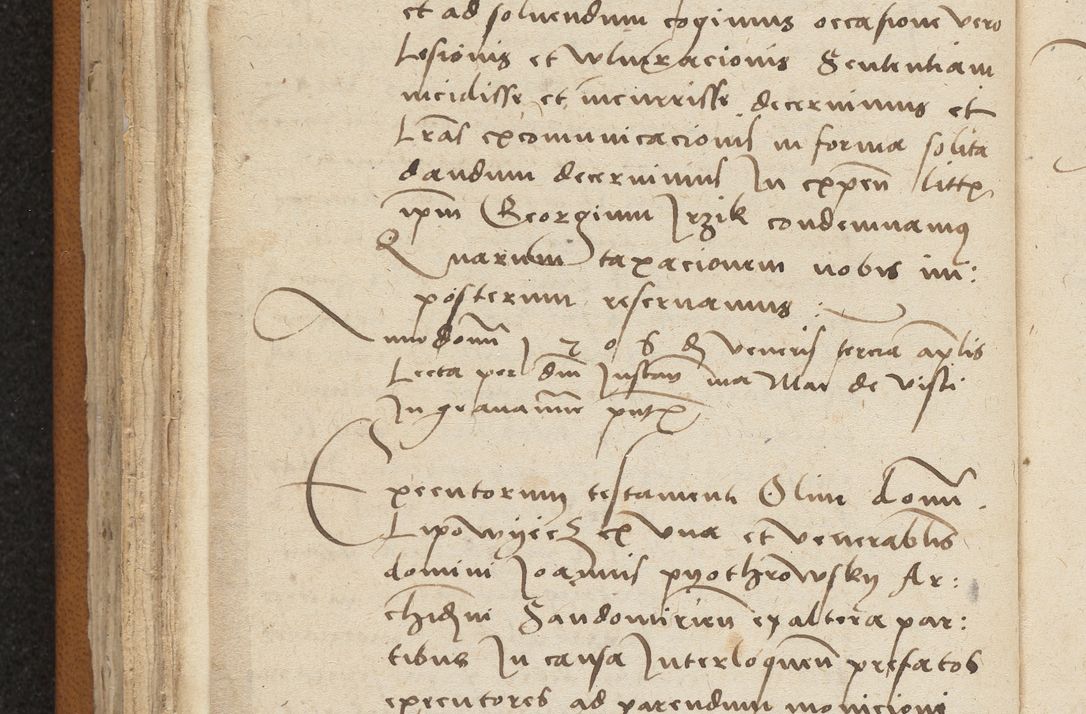 et ad soluendum cogimus occasione vero
Lesionis et wlneracionis Sententiam
incidisse et incurrisse decernimus et
Lrãs excomunicacionis in forma solita
dandum decernimus In expeñ litt
ipm Georgium Irzik condemnamus
Quarum taxacionem nobis im:
posterum reseruamus :
Anno domĩ 1 5 0 6 die veneris tercia aplis
Lecta per dm̃ ma de
In grauamine
Executorum testamenti Olim domĩ
Lipowyecz ex vna et venerablis
domini Ioannis pyothrowsky Ar:
chidni Sandomirien̄ ex altera par:
tibus In causa Interloquen̄ prefatos
executores ad parendum monicioni